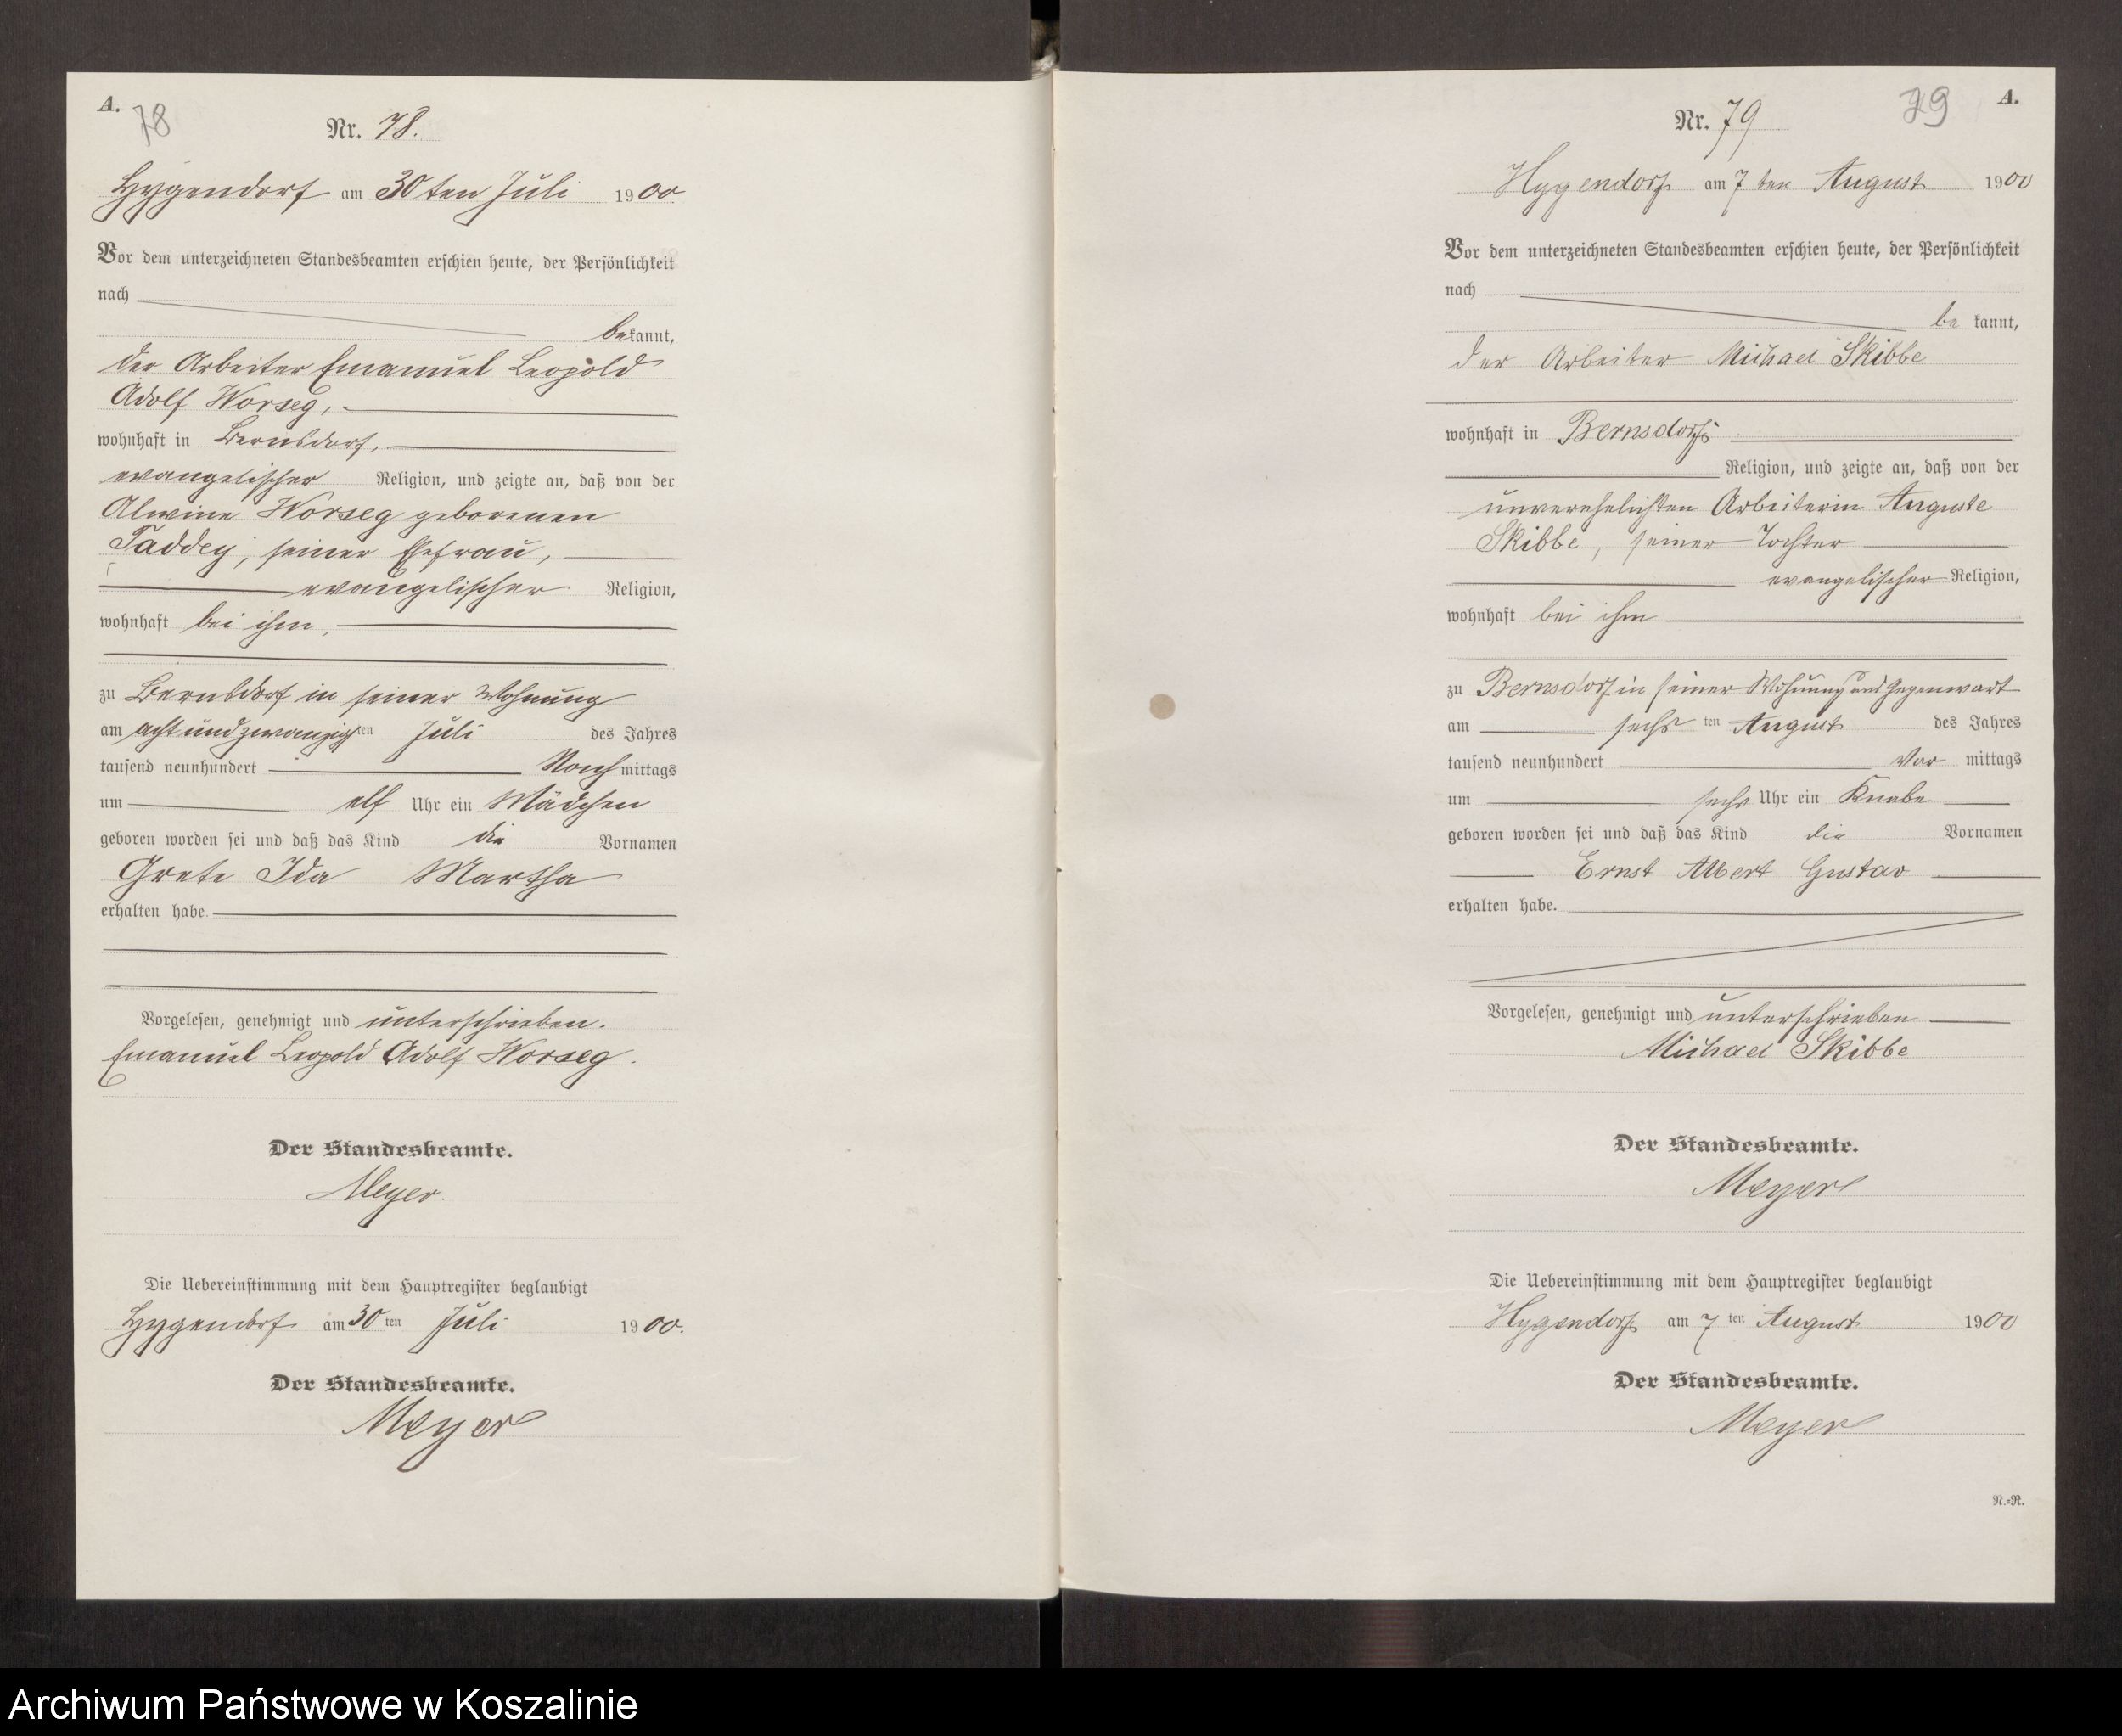 A.
78
Nr. 78.
Hygendorf am 30ten Juli 1900.
Vor dem unterzeichneten Standesbeamten erschien heute, der Persönlichkeit
nach
bekannt,
der Arbeiter Emanuel Leopold
Adolf Worseg,
wohnhaft in Bernsdorf,
evangelischer Religion, und zeigte an, daß von der
Alwine Worseg geborenen
Taddey, seiner Ehefrau,
evangelischer Religion,
wohnhaft bei ihm,
zu Bernsdorf in seiner Wohnung
am acht und zwanzigsten Juli des Jahres
tausend neunhundert Nachmittags
um elf Uhr ein Mädchen
geboren worden sei und daß das Kind die Vornamen
Grete Ida Martha
erhalten habe.
Vorgelesen, genehmigt und unterschrieben.
Emanuel Leopold Adolf Worseg.
Der Standesbeamte.
Meyer.
Die Uebereinstimmung mit dem Hauptregister beglaubigt
Hygendorf am 30ten Juli 1900.
Der Standesbeamte.
Meyer
79
A.
Nr. 79
Hygendorf am 7ten August 1900
Vor dem unterzeichneten Standesbeamten erschien heute, der Persönlichkeit
nach
bekannt,
der Arbeiter Michael Skibbe
wohnhaft in Bernsdorf
Religion, und zeigte an, daß von der
unverehelichten Arbeiterin Auguste
Skibbe, seiner Tochter
evangelischer Religion,
wohnhaft bei ihm
zu Bernsdorf in seiner Wohnung und Gegenwart
am sechsten August des Jahres
tausend neunhundert Vormittags
um sechs Uhr ein Knabe
geboren worden sei und daß das Kind die Vornamen
Ernst Albert Gustav
erhalten habe.
Vorgelesen, genehmigt und unterschrieben
Michael Skibbe
Der Standesbeamte.
Meyer
Die Uebereinstimmung mit dem Hauptregister beglaubigt
Hygendorf am 7ten August 1900
Der Standesbeamte.
Meyer
N.=R.
Archiwum Państwowe w Koszalinie